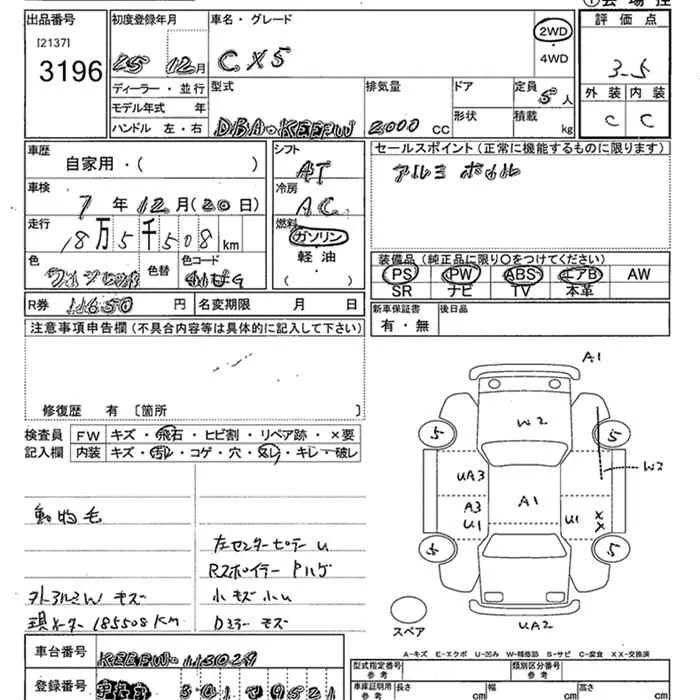 出品番号 初度登録年月 車名・グレード 2WD 評価点
[2137] 4WD
3196 25 12月 CX5 3.5
ディーラー・並行 型式 排気量 ドア 定員 外装 内装
モデル年式 年 5人 C C
ハンドル 左・右 DBA-KEEFW 2000 CC 形状 積載 kg
車歴 シフト セールスポイント(正常に機能するものに限ります)
自家用・( ) AT アルミ
車検 冷房
7年12月(20日) AC
走行 燃料
18万5千508km ガソリン
色 色替 色コード 軽油 装備品(純正品に限り○をつけてください)
( ) PS PW ABS エアB AW
SR ナビ TV 本革
R券 11650円 名変期限 月 日 新車保証書 後日品
有・無
注意事項申告欄(不具合内容等は具体的に記入して下さい)
修復歴 有 [箇所 ]
検査員 FW キズ・飛石・ヒビ割・リペア跡・×要
記入欄 内装 キズ・汚レ・コゲ・穴・スレ・キレ・破レ
A1
W2
5 5
W2
UA3
A1
A3
U1 U1 XX
5 5
UA2
スペア
動物毛
左センターピラーU
Rスポイラー Pハゲ
外アルミW キズ 小キズ小U
現メーター 185508KM Dミラー キズ
車台番号 KEEFW-113029
A-キズ E-エクボ U-凹み W-補修跡 S-サビ C-腐食 XX-交換済
型式指定番号 参考 類別区分番号 参考
登録番号 301 9521
車庫証明用 参考 長さ cm 幅 cm 高さ cm